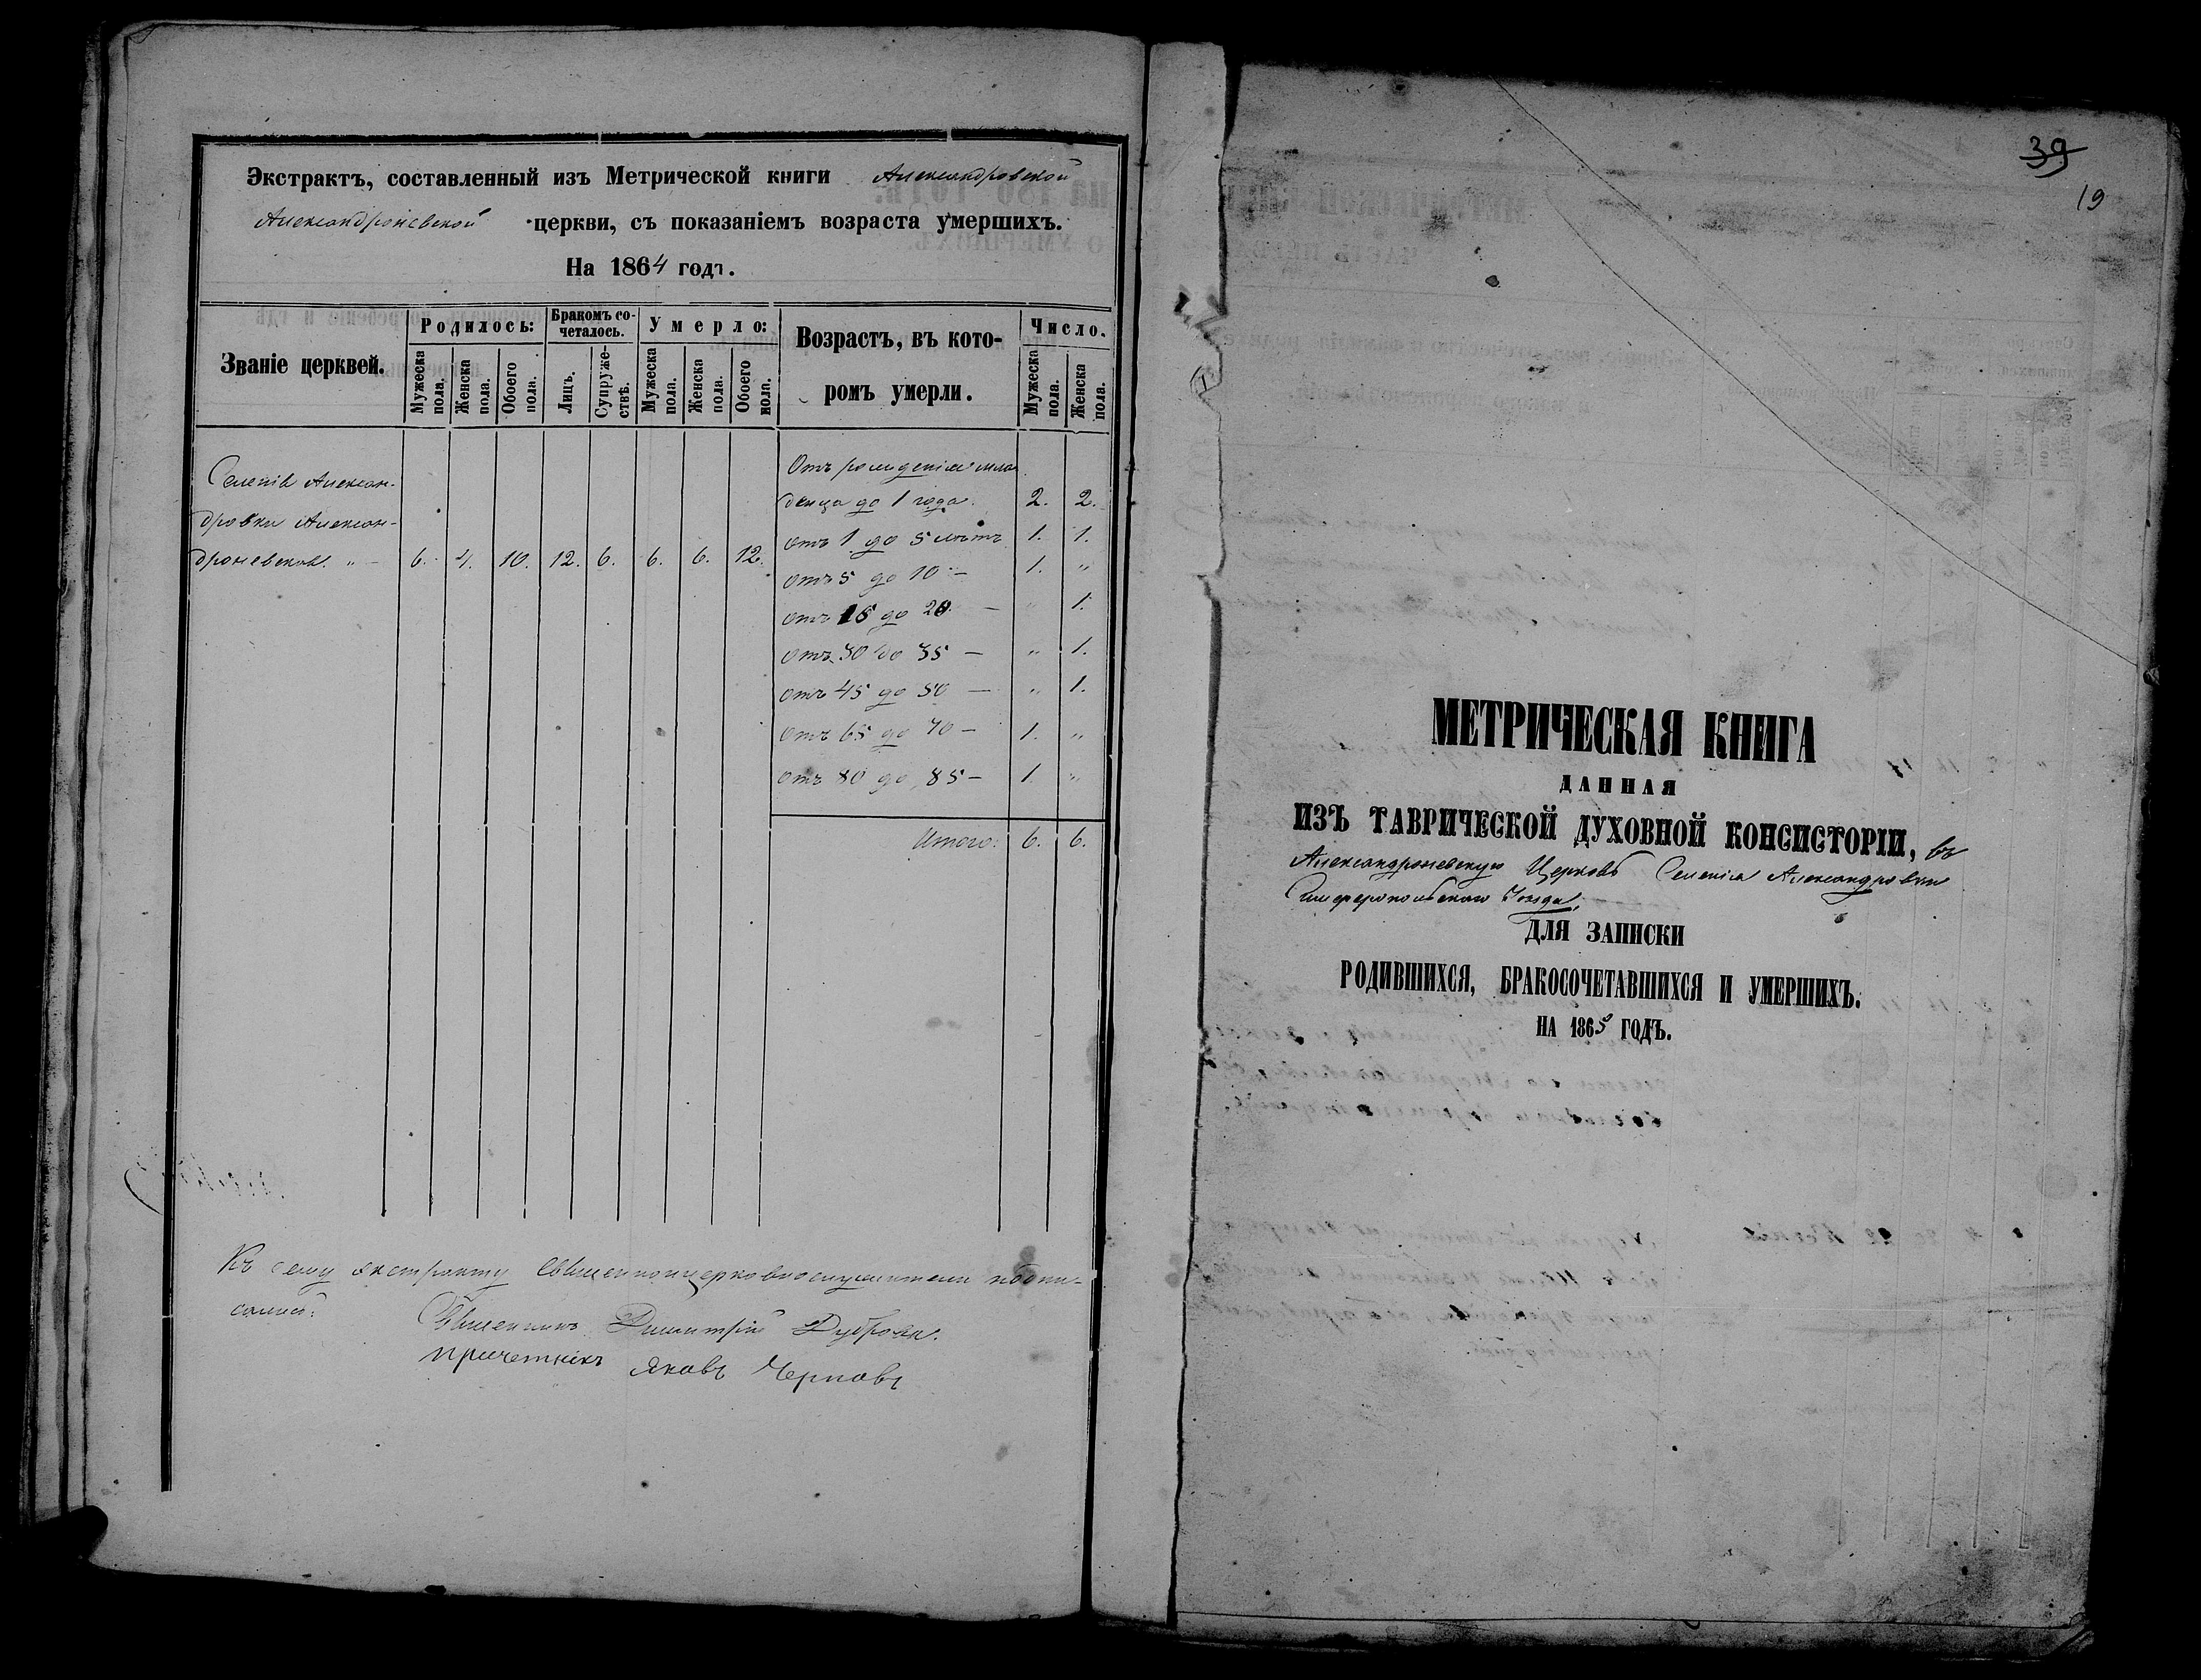 Экстрактъ, составленный изъ Метрической книги Александровской
Александроневской церкви, съ показаніемъ возраста умершихъ.
На 1864 годъ.
Званіе церквей.
Родилось:
Бракомъ со-
четалось.
Умерло:
Возрастъ, въ кото-
ромъ умерли.
Число.
Мужеска пола.
Женска пола.
Обоего пола.
Лицъ.
Супруже-
ствъ.
Мужеска пола.
Женска пола.
Обоего пола.
Мужеска пола.
Женска пола.
Селенія Алексан-
дровки Алексан-
дроневской. " — 6. 4. 10. 12. 6. 6. 6. 12.
Отъ рожденія мла-
денца до 1 года. 2. 2.
отъ 1 до 5 лѣтъ 1. 1.
отъ 5 до 10 — 1. "
отъ 15 до 20. — " 1.
отъ 30 до 35 — " 1.
отъ 45 до 50 — " 1.
отъ 65 до 70 — 1. "
отъ 80 до 85 — 1. "
Итого: 6. 6.
Къ сему экстракту священноцерковнослужители подпи-
сались:
Священникъ Димитрій
причетникъ Яковъ Черновъ
39
19
МЕТРИЧЕСКАЯ КНИГА
ДАННАЯ
ИЗЪ ТАВРИЧЕСКОЙ ДУХОВНОЙ КОНСИСТОРІИ, въ
Александроневскую Церковь Селенія Александровки
Симферопольскаго Уѣзда,
ДЛЯ ЗАПИСКИ
РОДИВШИХСЯ, БРАКОСОЧЕТАВШИХСЯ И УМЕРШИХЪ.
НА 1865 ГОДЪ.